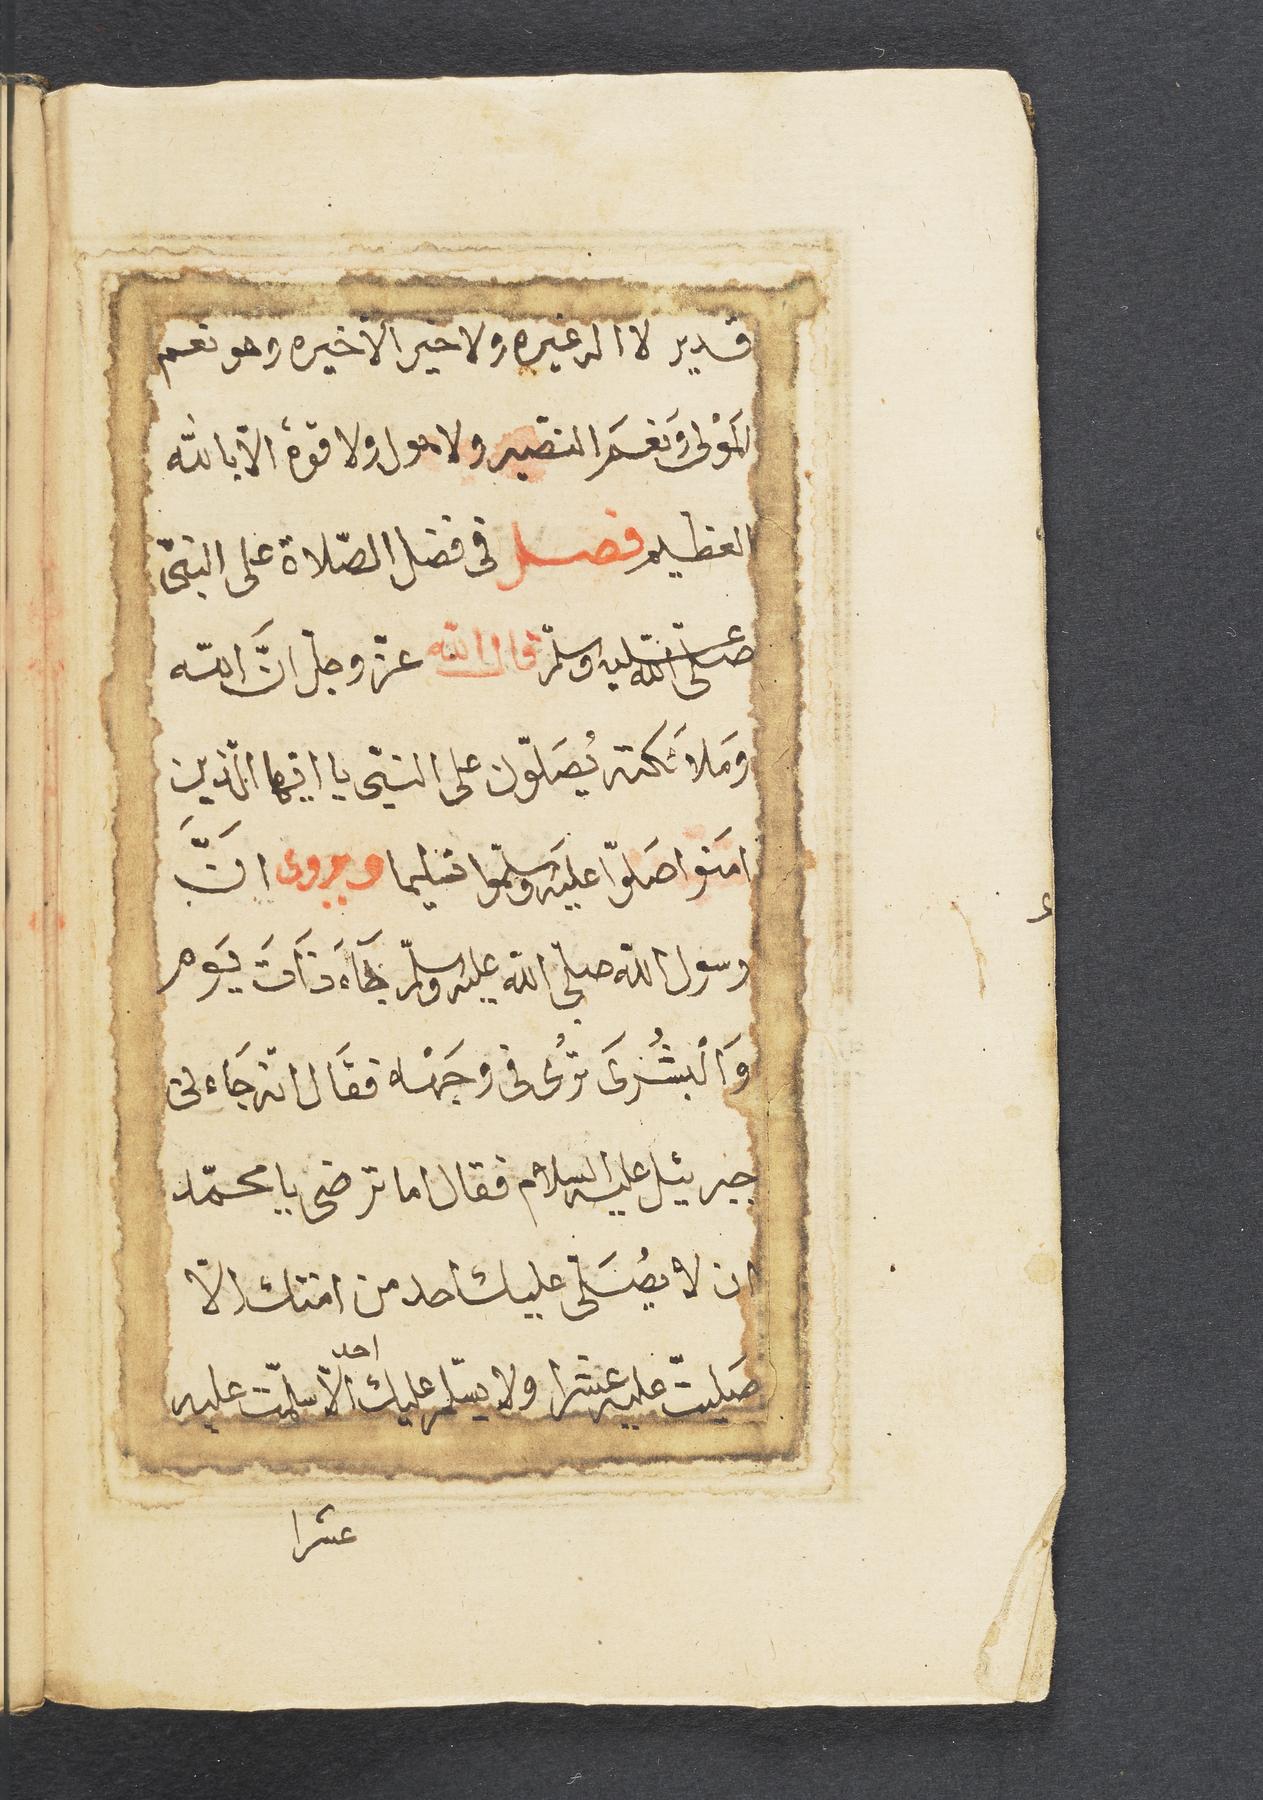 قدير لا اله غيره ولا خير الا خيره وهو نعم
المَوْلى وَنعمَ النصير ولا حول ولا قوة الّا بالله
العظيم فصل فى فضل الصّلاة على النبىّ
صلّى الله عليه وسلّم قال الله عزّ وجلّ انَّ الله
وَمَلاَئكته يُصَلّون على النبىّ يا ايّها الّذين
امَنوا صَلّوا عليه وسلّموا تسليما ويروى انَّ
رسول الله صلّى الله عليه وسلّم جَآءَ ذَاتَ يَوم
وَالْبشُرىَ تُرى فى وجَهْه فقَال انّه جَاءنى
جبريئل عليه السلام فقال اما ترضى يا محمّد
ان لا يصُلَّى عليك احد من امّتك الّا
صَليتّ عليه عشرا ولا يسّلم عليك احد الّا سلمّت عليه
عشرا